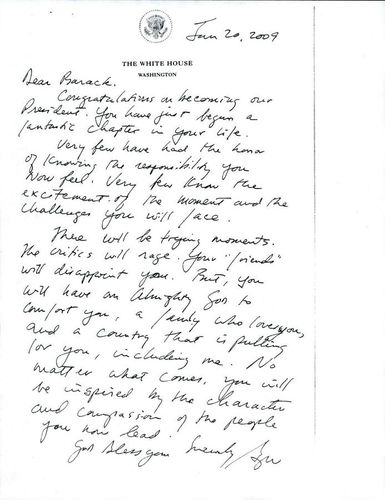 Jan 20, 2009
THE WHITE HOUSE
WASHINGTON
Dear Barack.
Congratulations on becoming our
President. You have just begun a
fantastic chapter in your life.
Very few have had the honor
of knowing the responsibility you
now feel. Very few know the
excitement of the moment and the
challenges you will face.
There will be trying moments.
The critics will rage. Your "friends"
will disappoint you. But, you
will have an Almighty God to
comfort you, a family who loves you,
and a country that is pulling
for you, including me. No
matter what comes, you will
be inspired by the character
and compassion of the people
you now lead.
God bless you. Sincerely,